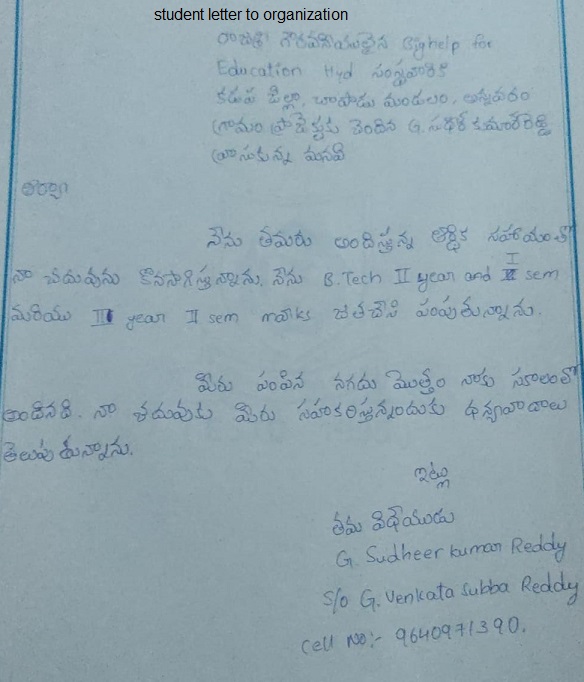 student letter to organization
రాజశ్రీ గౌరవనీయులైన Bighelp for
Education Hyd సంస్థవారికి
కడప జిల్లా, చాపాడు మండలం, అన్నవరం
గ్రామం చెందిన G. సుధీర్ కుమార్ రెడ్డి
వ్రాసుకున్న మనవి
ఆర్యా
నేను తమరు అందిస్తున్న ఆర్థిక సహాయంతో
నా చదువును కొనసాగిస్తున్నాను. నేను B.Tech II year and I sem
మరియు II year II sem marks జతచేసి పంపుతున్నాను.
మీరు పంపిన నగదు మొత్తం నాకు సకాలంలో
అందినది. నా చదువుకు మీరు సహకరిస్తున్నందుకు ధన్యవాదాలు
తెలుపుతున్నాను.
ఇట్లు
తమ విధేయుడు
G. Sudheer kumar Reddy
S/o G. Venkata Subba Reddy
Cell No:- 9640971390.